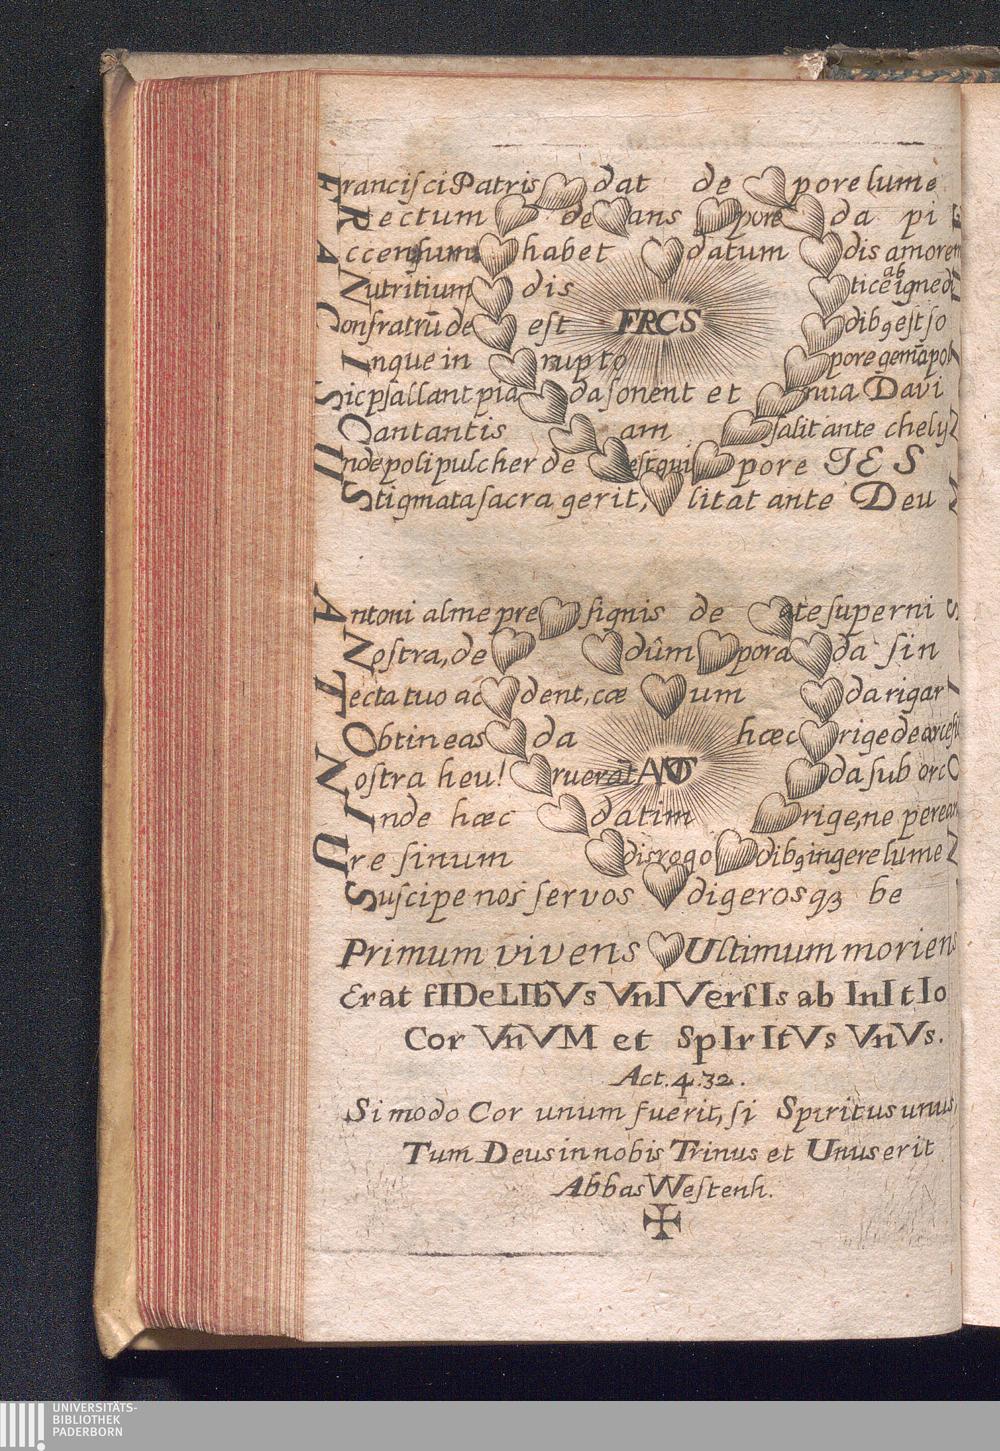 Franciſci Patris dat de pore lume
Rectum de ans pore da pi
Accenſum habet datum dis amorem
Nutritium dis tice ab igne di
Conſratrū de eſt FRCS dibꝯ eſt ſo
Inque in rupto pore gemā po
Sic pſallant pia da ſonent et nua Davi
Cantantis am ſalit ante chely
Unde poli pulcher de eſt qui pore IES
Stigmata ſacra gerit, litat ante Deu
Antoni alme pre ſignis de ate ſuperni S
Noſtra, de dûm pora da ſin
Tecta tuo ac dent, cæ um da rigar
Obtineas da hæc rige de arce
Noſtra heu! ruerāt ANT da ſub orc
Inde hæc datim rige, ne perea
Ure ſinum dis rogo dibꝯ ingere lume
Suſcipe nos ſervos digerosqꝫ be
Primum vivens Ultimum moriens
Erat fIDeLIbVs VnIVerſIs ab InItIo
Cor VnVM et SpIrItVs VnVs.
Act. 4. 32.
Si modo Cor unum fuerit, ſi Spiritus unus,
Tum Deus in nobis Trinus et Unus erit
Abbas Weſtenh.
UNIVERSITÄTS-
BIBLIOTHEK
PADERBORN